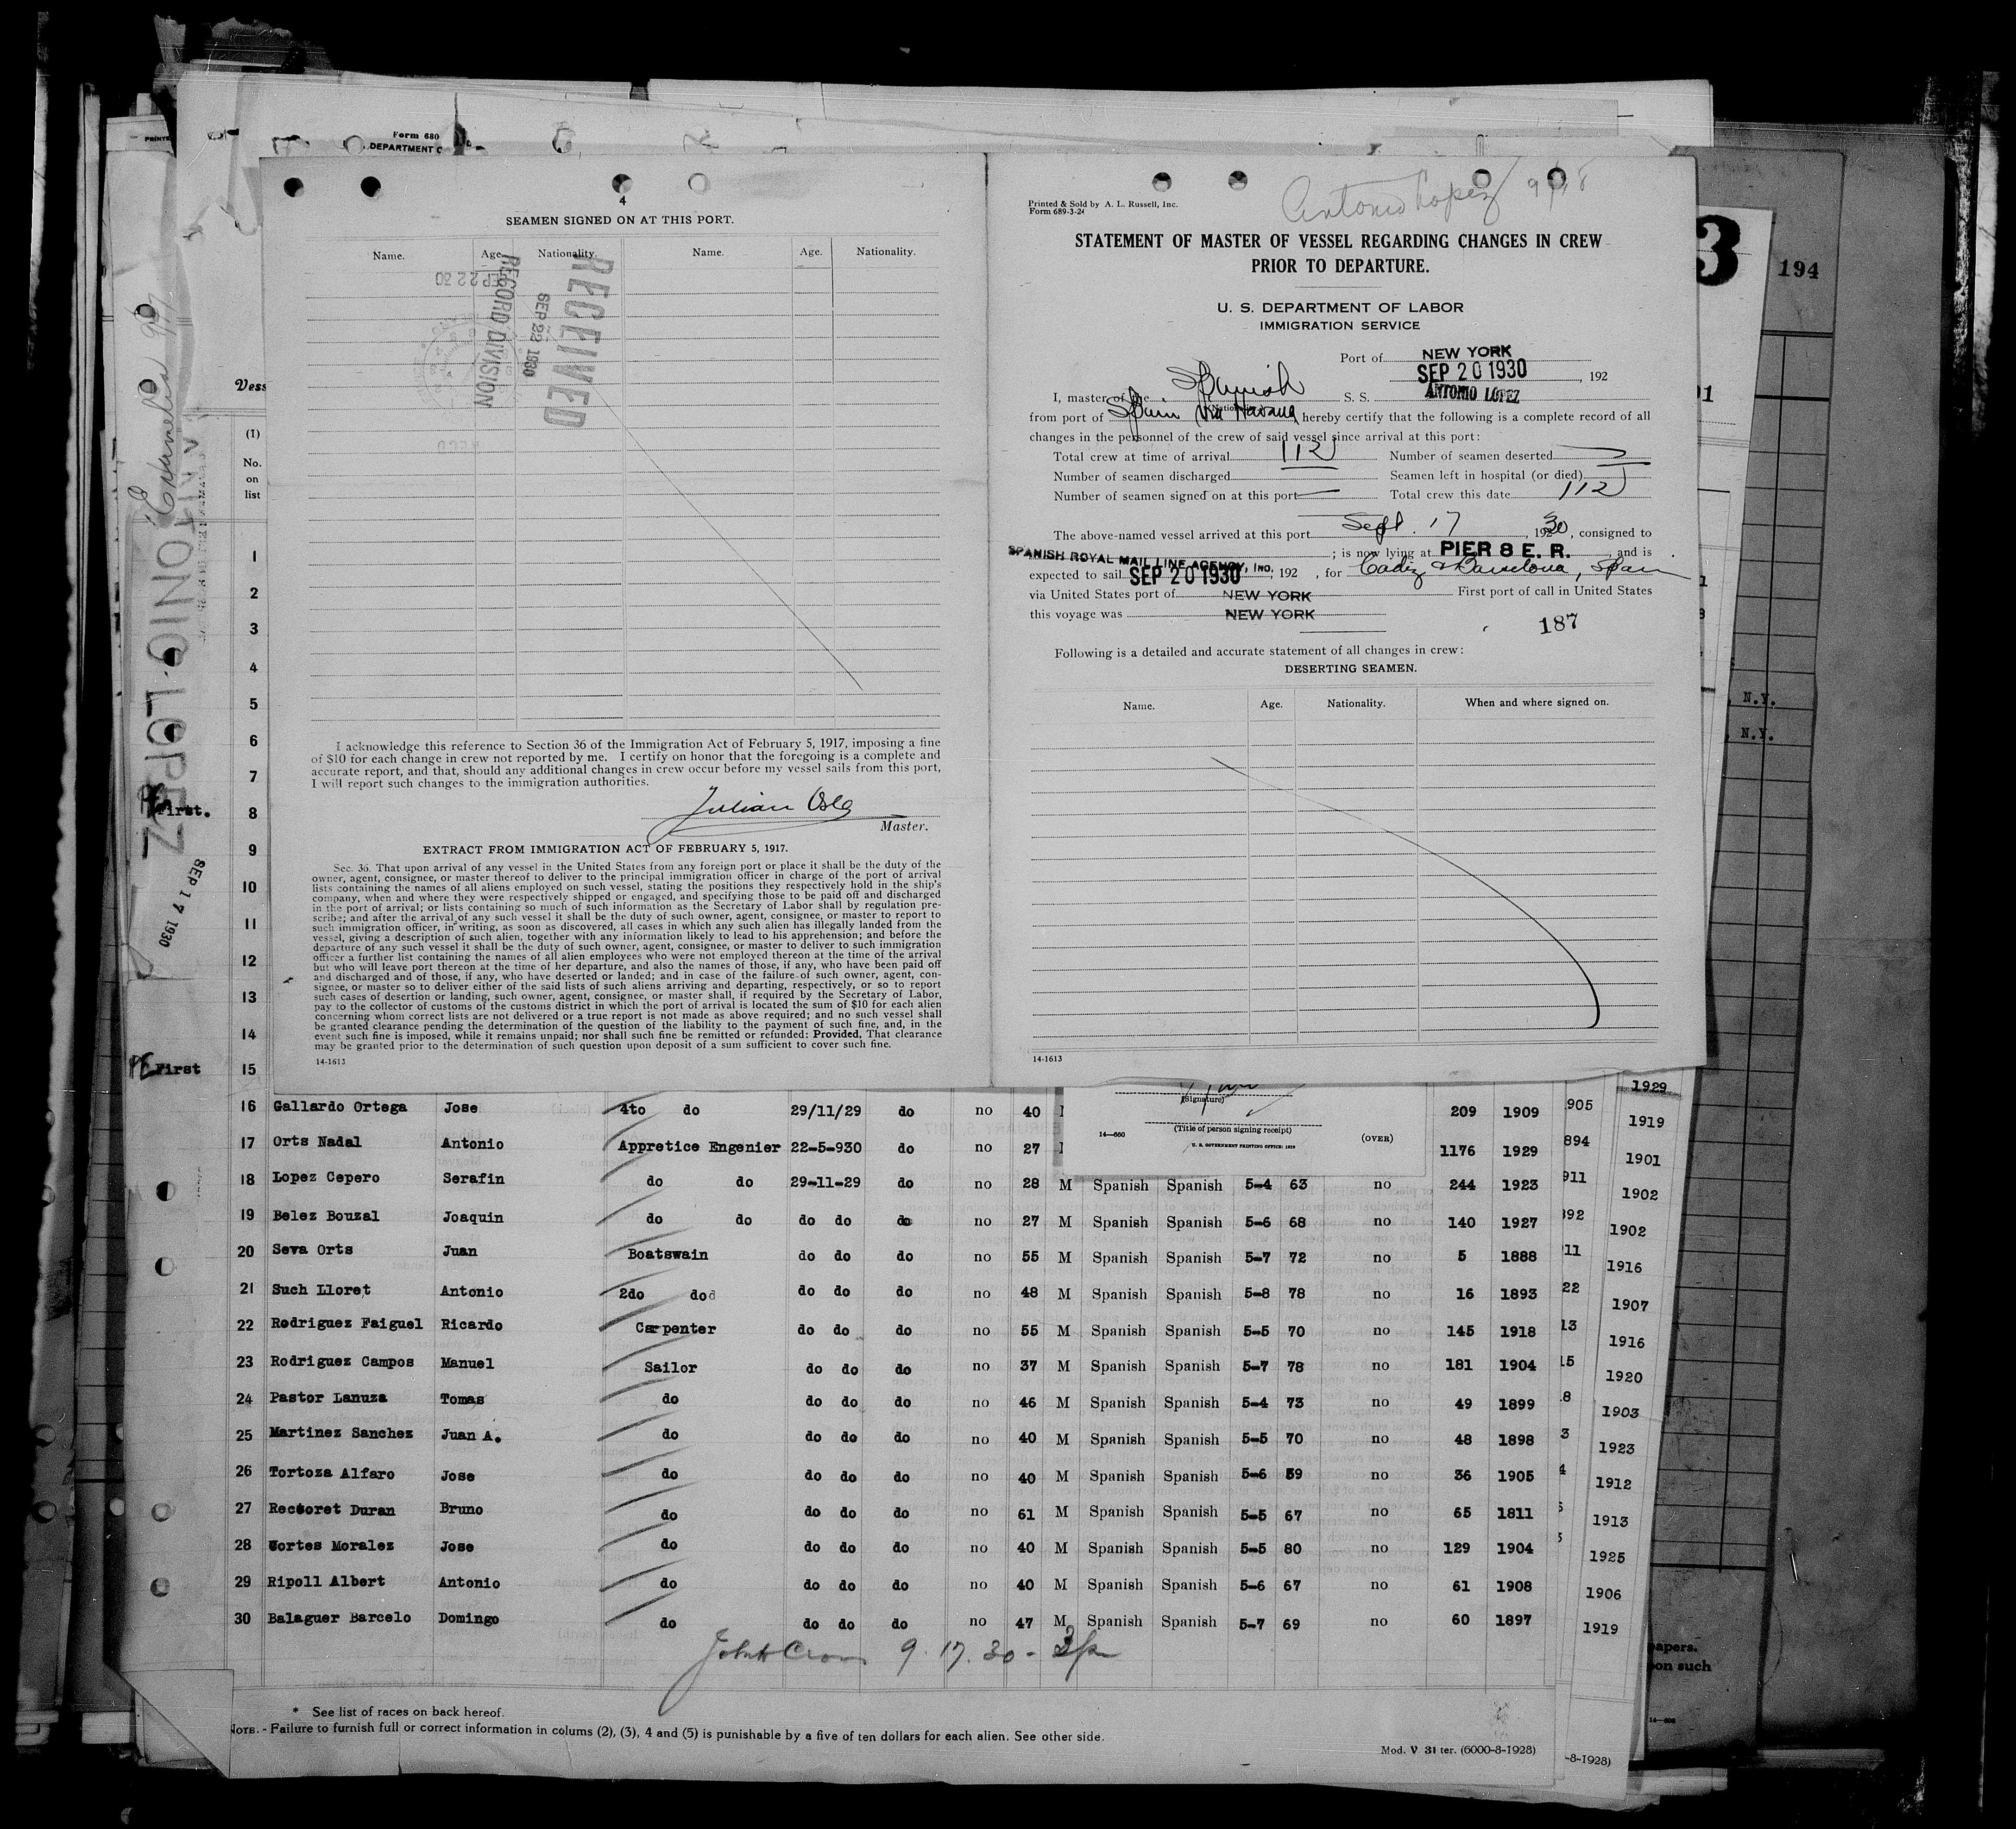 Form 680
DEPARTMENT O
4
SEAMEN SIGNED ON AT THIS PORT.
Name. Age. Nationality. Name. Age. Nationality.
SEP 22 30
RECORD DIVISION
SEP 22 1930
RECEIVED
I acknowledge this reference to Section 36 of the Immigration Act of February 5, 1917, imposing a fine
of $10 for each change in crew not reported by me. I certify on honor that the foregoing is a complete and
accurate report, and that, should any additional changes in crew occur before my vessel sails from this port,
I will report such changes to the immigration authorities.
Julian
Master.
EXTRACT FROM IMMIGRATION ACT OF FEBRUARY 5, 1917.
Sec. 36. That upon arrival of any vessel in the United States from any foreign port or place it shall be the duty of the
owner, agent, consignee, or master thereof to deliver to the principal immigration officer in charge of the port of arrival
lists containing the names of all aliens employed on such vessel, stating the positions they respectively hold in the ship's
company, when and where they were respectively shipped or engaged, and specifying those to be paid off and discharged
in the port of arrival; or lists containing so much of such information as the Secretary of Labor shall by regulation pre-
scribe; and after the arrival of any such vessel it shall be the duty of such owner, agent, consignee, or master to report to
such immigration officer, in writing, as soon as discovered, all cases in which any such alien has illegally landed from the
vessel, giving a description of such alien, together with any information likely to lead to his apprehension; and before the
departure of any such vessel it shall be the duty of such owner, agent, consignee, or master to deliver to such immigration
officer a further list containing the names of all alien employees who were not employed thereon at the time of the arrival
but who will leave port thereon at the time of her departure, and also the names of those, if any, who have been paid off
and discharged and of those, if any, who have deserted or landed; and in case of the failure of such owner, agent, con-
signee, or master so to deliver either of the said lists of such aliens arriving and departing, respectively, or so to report
such cases of desertion or landing, such owner, agent, consignee, or master shall, if required by the Secretary of Labor,
pay to the collector of customs of the customs district in which the port of arrival is located the sum of $10 for each alien
concerning whom correct lists are not delivered or a true report is not made as above required; and no such vessel shall
be granted clearance pending the determination of the question of the liability to the payment of such fine, and, in the
event such fine is imposed, while it remains unpaid; nor shall such fine be remitted or refunded: Provided, That clearance
may be granted prior to the determination of such question upon deposit of a sum sufficient to cover such fine.
14-1613
Antonio Lopez 9/18
Printed & Sold by A. L. Russell, Inc.
Form 689-3-24
STATEMENT OF MASTER OF VESSEL REGARDING CHANGES IN CREW
PRIOR TO DEPARTURE.
U. S. DEPARTMENT OF LABOR
IMMIGRATION SERVICE
Port of NEW YORK
SEP 20 1930, 192
I, master of the Spanish S. S. ANTONIO LOPEZ
from port of Spain Via Havana, hereby certify that the following is a complete record of all
changes in the personnel of the crew of said vessel since arrival at this port:
Total crew at time of arrival 112 Number of seamen deserted
Number of seamen discharged Seamen left in hospital (or died)
Number of seamen signed on at this port Total crew this date 112
The above-named vessel arrived at this port Sept. 17, 1930, consigned to
SPANISH ROYAL MAIL LINE AGENCY, INC. ; is now lying at PIER 8 E. R. and is
expected to sail SEP 20 1930, 192 , for Cadiz & Barcelona, Spain
via United States port of NEW YORK First port of call in United States
this voyage was NEW YORK
187
Following is a detailed and accurate statement of all changes in crew:
DESERTING SEAMEN.
Name. Age. Nationality. When and where signed on.
14-1613
3
194
N.Y.
N.Y.
ANTONIO LOPEZ
SEP 17 1930
Vess
(1)
No.
on
list
1
2
3
4
5
6
7
First. 8
9
10
11
12
13
14
First 15
(Signature)
(Title of person signing receipt)
14—660
(OVER)
U. S. GOVERNMENT PRINTING OFFICE: 1929
1929
16 Gallardo Ortega Jose 4to do 29/11/29 do no 40 209 1909 905 1919
17 Orts Nadal Antonio Appretice Engenier 22-5-930 do no 27 1176 1929 894 1901
18 Lopez Cepero Serafin do do 29-11-29 do no 28 M Spanish Spanish 5-4 63 no 244 1923 911 1902
19 Belez Bouzal Joaquin do do do do do no 27 M Spanish Spanish 5-6 68 no 140 1927 92 1902
20 Seva Orts Juan Boatswain do do do no 55 M Spanish Spanish 5-7 72 no 5 1888 11 1916
21 Such Lloret Antonio 2do do do do do no 48 M Spanish Spanish 5-8 78 no 16 1893 22 1907
22 Rodriguez Faiguel Ricardo Carpenter do do do no 55 M Spanish Spanish 5-5 70 no 145 1918 13 1916
23 Rodriguez Campos Manuel Sailor do do do no 37 M Spanish Spanish 5-7 78 no 181 1904 15 1920
24 Pastor Lanuza Tomas do do do do no 46 M Spanish Spanish 5-4 73 no 49 1899 8 1903
25 Martinez Sanchez Juan A. do do do do no 40 M Spanish Spanish 5-5 70 no 48 1898 3 1923
26 Tortoza Alfaro Jose do do do do no 40 M Spanish Spanish 5-6 59 no 36 1905 4 1912
27 Rectoret Duran Bruno do do do do no 61 M Spanish Spanish 5-5 67 no 65 1811 1913
28 Cortes Morales Jose do do do do no 40 M Spanish Spanish 5-5 80 no 129 1904 1925
29 Ripoll Albert Antonio do do do do no 40 M Spanish Spanish 5-6 67 no 61 1908 1906
30 Balaguer Barcelo Domingo do do do do no 47 M Spanish Spanish 5-7 69 no 60 1897 1919
9.17.30 -
* See list of races on back hereof.
NOTE. - Failure to furnish full or correct information in colums (2), (3), 4 and (5) is punishable by a five of ten dollars for each alien. See other side.
Mod. V 31 ter. (6000-8-1928)
-8-1928)
apers.
on such